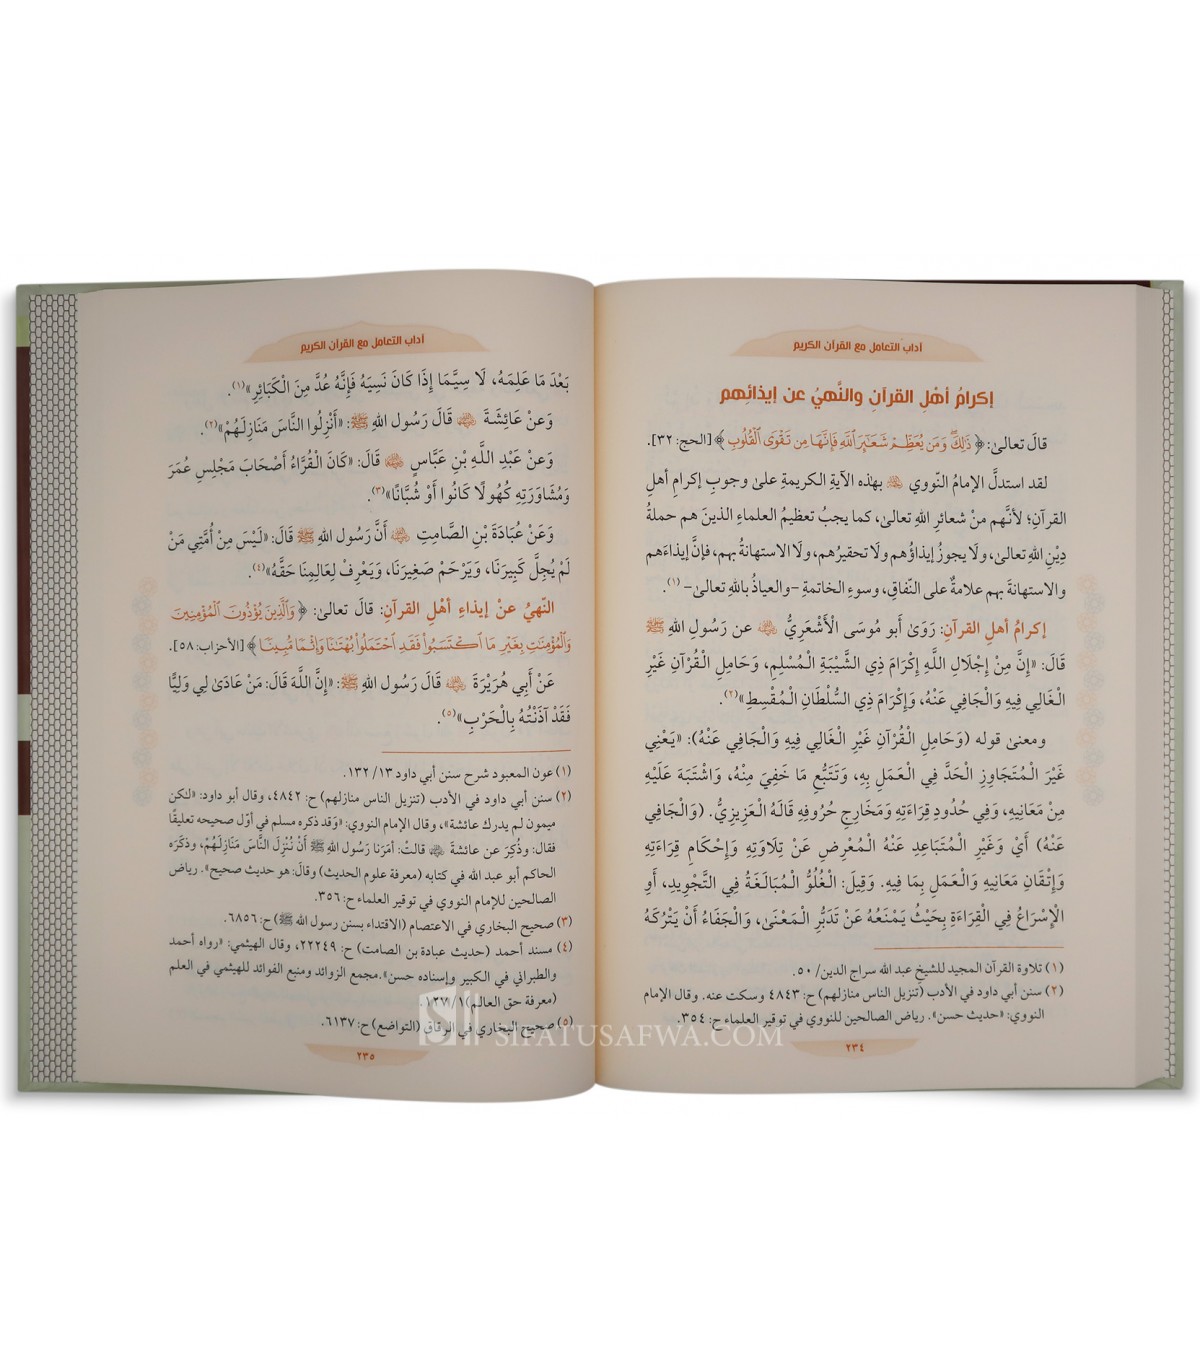 آداب التعامل مع القرآن الكريم
إكرامُ أهْلِ القرآنِ والنَّهيُ عن إيذائِهم
قال تعالىٰ: ﴿ ذَٰلِكَ وَمَن يُعَظِّمْ شَعَٰٓئِرَ ٱللَّهِ فَإِنَّهَا مِن تَقْوَى ٱلْقُلُوبِ ﴾ [الحج: ٣٢].
لقد استدلَّ الإمامُ النّووي بهٰذه الآيةِ الكريمةِ علىٰ وجوبِ إكرامِ أهلِ
القرآنِ؛ لأنَّهم منْ شعائرِ اللهِ تعالىٰ، كما يجبُ تعظيمُ العلماءِ الذينَ هم حملةُ
دِيْنِ اللهِ تعالىٰ، ولا يجوزُ إيذاؤُهم ولا تحقيرُهم، ولا الاستهانةُ بهم، فإنَّ إيذاءَهم
والاستهانةَ بهم علامةٌ على النّفاقِ، وسوءِ الخاتمةِ -والعياذُ باللهِ تعالىٰ-(١).
إكرامُ أهلِ القرآنِ: رَوَىٰ أَبو مُوسَى الْأَشْعَرِيُّ عن رَسُولِ اللهِ ﷺ
قَالَ: «إِنَّ مِنْ إِجْلَالِ اللَّهِ إِكْرَامَ ذِي الشَّيْبَةِ الْمُسْلِمِ، وَحَامِلِ الْقُرْآنِ غَيْرِ
الْغَالِي فِيهِ وَالْجَافِي عَنْهُ، وَإِكْرَامَ ذِي السُّلْطَانِ الْمُقْسِطِ»(٢).
ومعنىٰ قوله (وَحَامِلِ الْقُرْآنِ غَيْرِ الْغَالِي فِيهِ وَالْجَافِي عَنْهُ): «يَعْنِي
غَيْرَ الْمُتَجَاوِزِ الْحَدَّ فِي الْعَمَلِ بِهِ، وَتَتَبُّعِ مَا خَفِيَ مِنْهُ، وَاشْتَبَهَ عَلَيْهِ
مِنْ مَعَانِيهِ، وَفِي حُدُودِ قِرَاءَتِهِ وَمَخَارِجِ حُرُوفِهِ قَالَهُ الْعَزِيزِيُّ. (وَالْجَافِي
عَنْهُ) أَيْ وَغَيْرِ الْمُتَبَاعِدِ عَنْهُ الْمُعْرِضِ عَنْ تِلَاوَتِهِ وَإِحْكَامِ قِرَاءَتِهِ
وَإِتْقَانِ مَعَانِيهِ وَالْعَمَلِ بِمَا فِيهِ. وَقِيلَ: الْغُلُوُّ الْمُبَالَغَةُ فِي التَّجْوِيدِ، أَوِ
الْإِسْرَاعُ فِي الْقِرَاءَةِ بِحَيْثُ يَمْنَعُهُ عَنْ تَدَبُّرِ الْمَعْنَىٰ، وَالْجَفَاءُ أَنْ يَتْرُكَهُ
(١) تلاوة القرآن المجيد للشيخ عبد الله سراج الدين/ ٥٠.
(٢) سنن أبي داود في الأدب (تنزيل الناس منازلهم) ح: ٤٨٤٣ وسكت عنه. وقال الإمام
النووي: «حديث حسن». رياض الصالحين للنووي في توقير العلماء ح: ٣٥٤.
٢٣٤
آداب التعامل مع القرآن الكريم
بَعْدَ مَا عَلِمَهُ، لَا سِيَّمَا إِذَا كَانَ نَسِيَهُ فَإِنَّهُ عُدَّ مِنَ الْكَبَائِرِ»(١).
وَعَنْ عَائِشَةَ قَالَ رَسُول اللهِ ﷺ: «أَنْزِلُوا النَّاسَ مَنَازِلَهُمْ»(٢).
وَعَنْ عَبْدِ اللَّهِ بْنِ عَبَّاسٍ قَالَ: «كَانَ الْقُرَّاءُ أَصْحَابَ مَجْلِسِ عُمَرَ
وَمُشَاوَرَتِهِ كُهُولًا كَانُوا أَوْ شُبَّانًا»(٣).
وَعَنْ عُبَادَةَ بْنِ الصَّامِتِ أَنَّ رَسُول اللهِ ﷺ قَالَ: «لَيْسَ مِنْ أُمَّتِي مَنْ
لَمْ يُجِلَّ كَبِيرَنَا، وَيَرْحَمْ صَغِيرَنَا، وَيَعْرِفْ لِعَالِمِنَا حَقَّهُ»(٤).
النّهيُ عنْ إيذاءِ أهْلِ القرآنِ: قالَ تعالىٰ: ﴿ وَٱلَّذِينَ يُؤْذُونَ ٱلْمُؤْمِنِينَ
وَٱلْمُؤْمِنَٰتِ بِغَيْرِ مَا ٱكْتَسَبُوا۟ فَقَدِ ٱحْتَمَلُوا۟ بُهْتَٰنًا وَإِثْمًا مُّبِينًا ﴾ [الأحزاب: ٥٨].
عَنْ أَبِي هُرَيْرَةَ قَالَ رَسُول اللهِ ﷺ: «إِنَّ اللَّهَ قَالَ: مَنْ عَادَىٰ لِي وَلِيًّا
فَقَدْ آذَنْتُهُ بِالْحَرْبِ»(٥).
(١) عون المعبود شرح سنن أبي داود ١٣/ ١٣٢.
(٢) سنن أبي داود في الأدب (تنزيل الناس منازلهم) ح: ٤٨٤٢، وقال أبو داود: «لكن
ميمون لم يدرك عائشة»، وقال الإمام النووي: «وَقد ذكره مسلم في أوّل صحيحه تعليقًا
فقال: وذُكِرَ عن عائشةَ قالتْ: أمَرَنا رَسُولُ اللهِ ﷺ أَنْ نُنْزِلَ النَّاسَ مَنَازِلَهُمْ، وذكَرَه
الحاكم أبو عبد الله في كتابه (معرفة علوم الحديث) وقالَ: هو حديث صحيح». رياض
الصالحين للإمام النووي في توقير العلماء ح: ٣٥٦.
(٣) صحيح البخاري في الاعتصام (الاقتداء بسنن رسول الله ﷺ) ح: ٦٨٥٦.
(٤) مسند أحمد (حديث عبادة بن الصامت) ح: ٢٢٢٤٩، وقال الهيثمي: «رواه أحمد
والطبراني في الكبير وإسناده حسن». مجمع الزوائد ومنبع الفوائد للهيثمي في العلم
(معرفة حق العالم) ١/ ١٢٧.
(٥) صحيح البخاري في الرقاق (التواضع) ح: ٦١٣٧.
٢٣٥
SIFATUSAFWA.COM